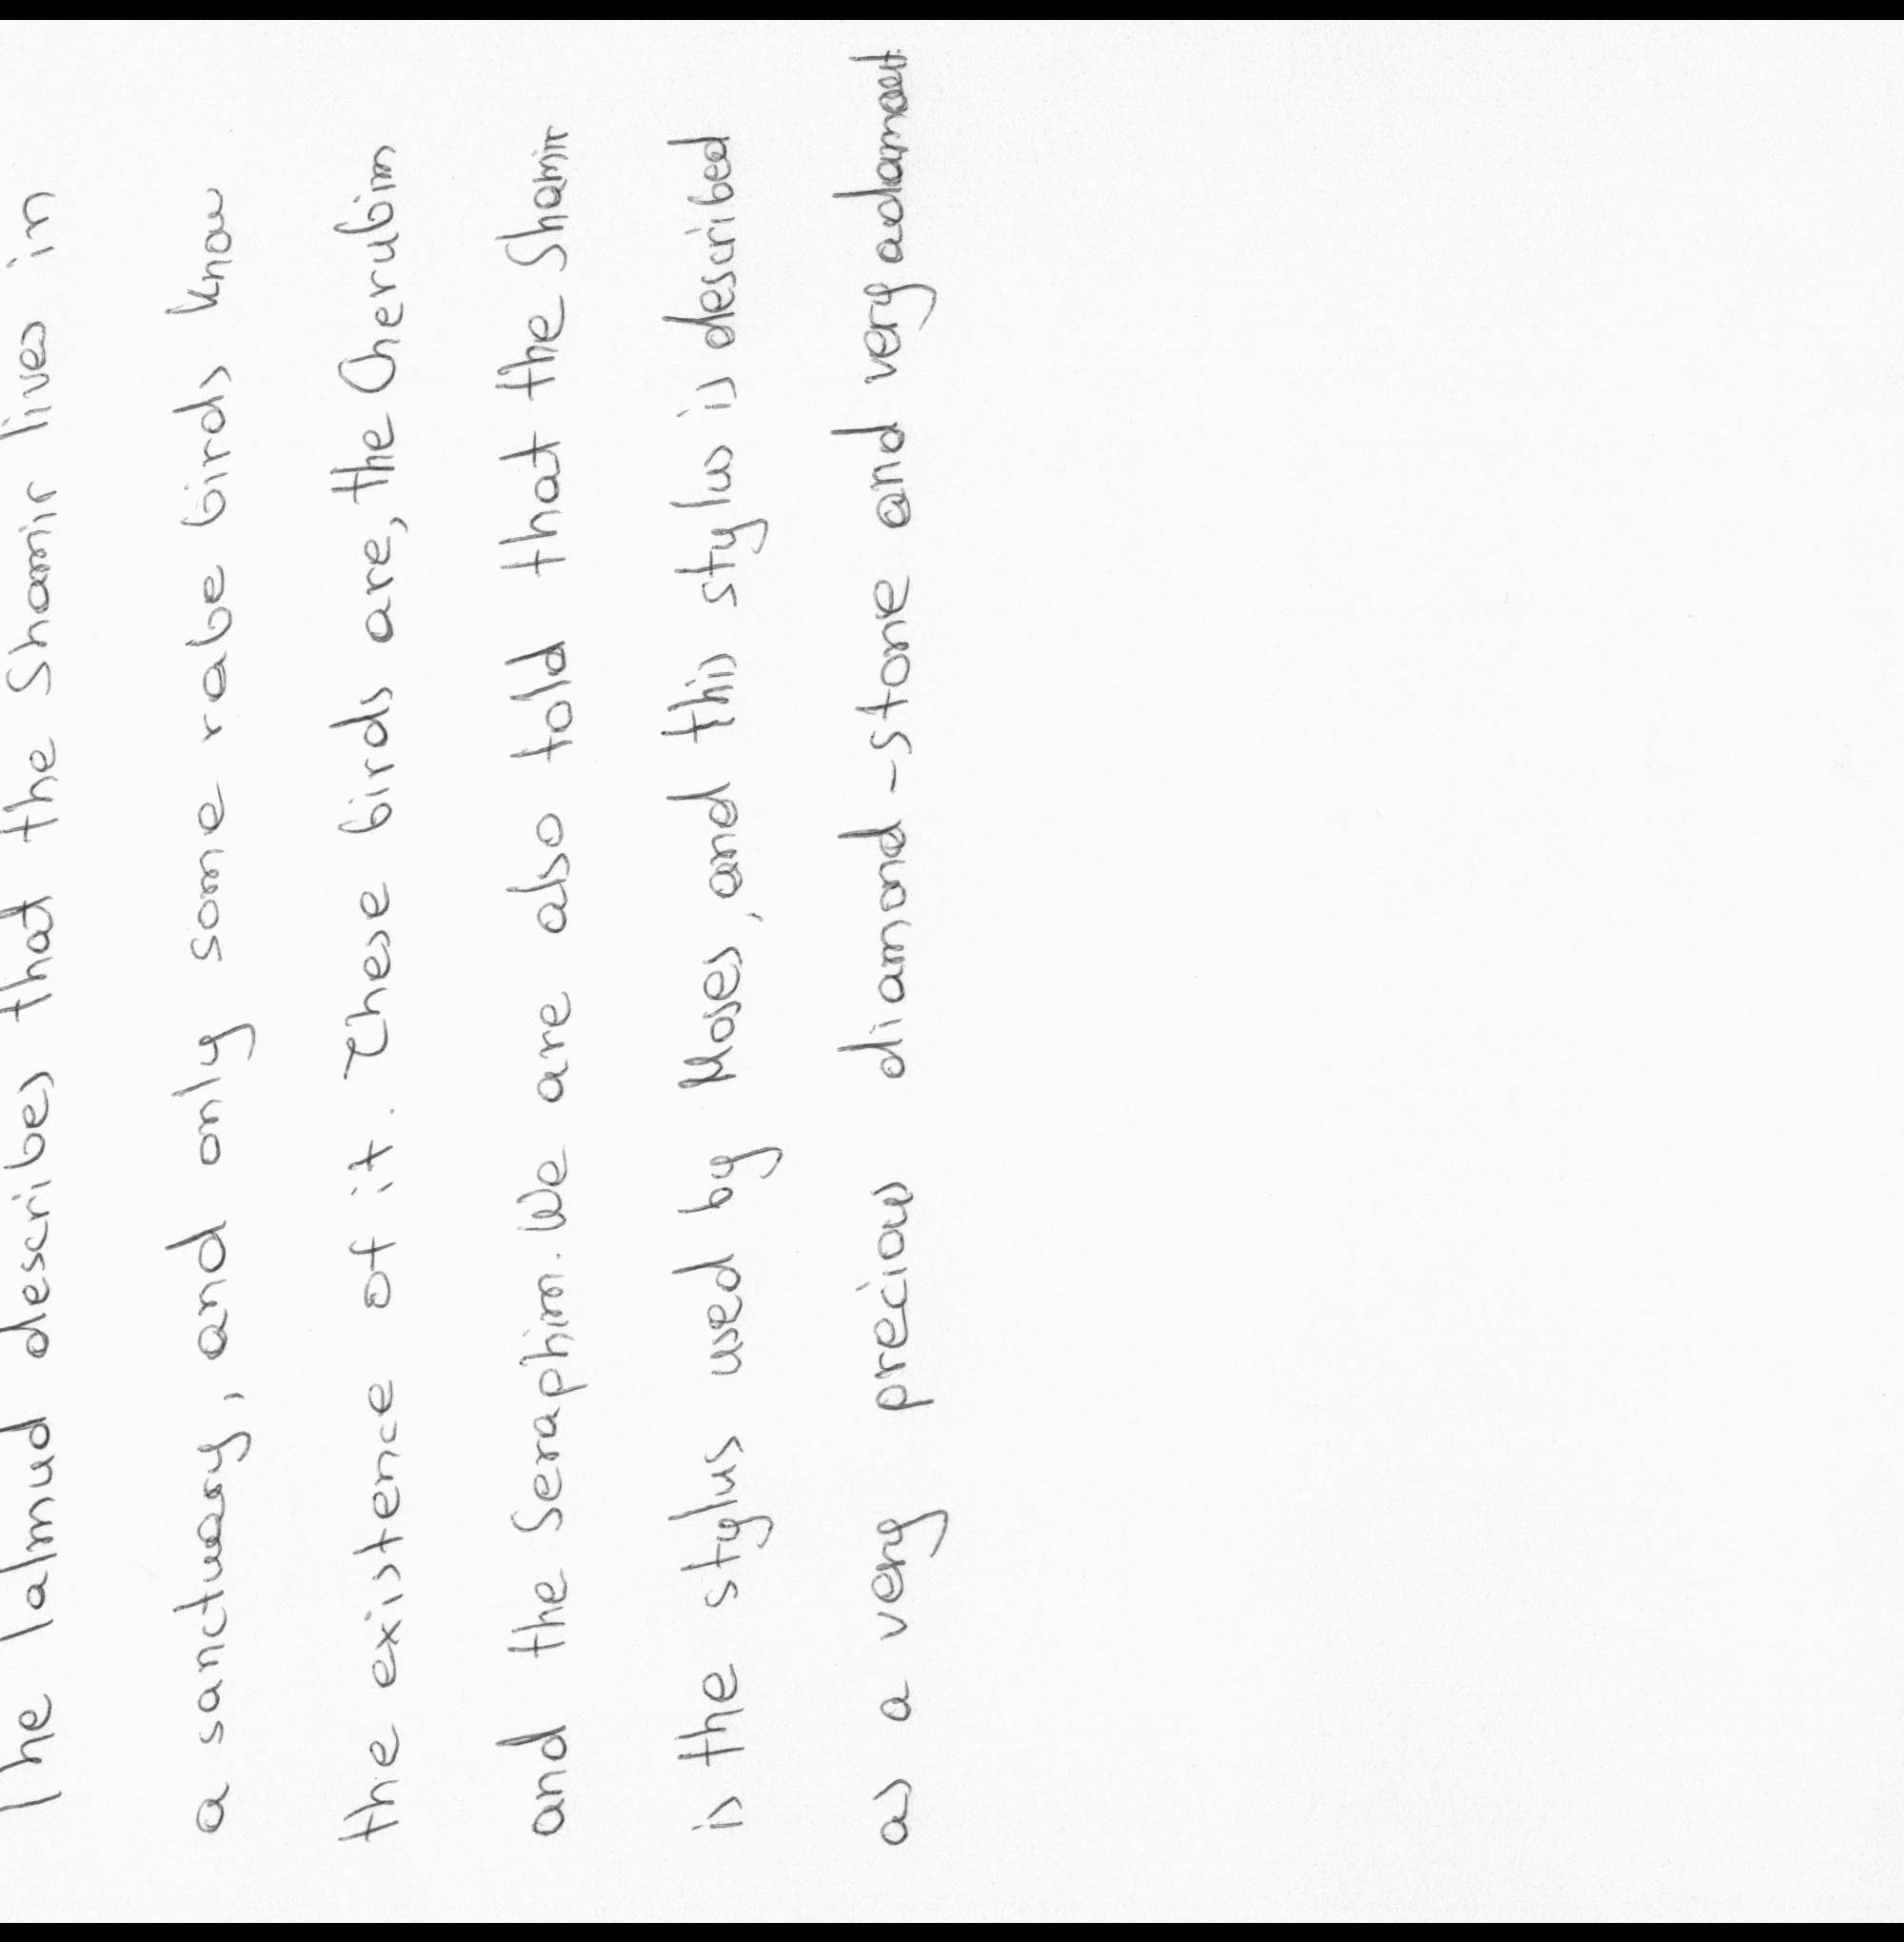 The Talmud describes that the Shamir lives in
a sanctuary, and only some rabe birds know
the existence of it. These birds are, the Cherubim
and the Seraphim. We are also told that the Shamir
is the stylus used by Moses, and this stylus is described
as a very precious diamond-stone and very adamant.